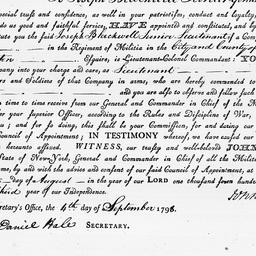 ecial trust and confidence, as well in your patriotism, conduct and loyalty,
d as good and faithful Service, HAVE appointed and constituted, and by
itute you the said Joseph Blackwell Junior Lieutenant of a Com
in the Regiment of Militia in the City and County of
Esquire, is Lieutenant-Colonel Commandant: YO
mpany into your charge and care, as Lieutenant
ers and Soldiers of that Company in arms, who are hereby commanded to
and you are also to observe and follow such
e to time receive from our General and Commander in Chief of the M
r your superior Officer, according to the Rules and Discipline of War,
ou; and for so doing, this shall be your Commission, for and during our
Council of Appointment; IN TESTIMONY whereof, we have caused our
hereunto affixed. WITNESS, our trusty and well-beloved JOHN
State of New-York, General and Commander in Chief of all the Milit
me, by and with the advice and consent of our said Council of Appointment, at
day of August in the year of our LORD one thousand seven hund
third year of our Independence.
Secretary's Office, the 4th day of September 1798.
Daniel Hale SECRETARY.